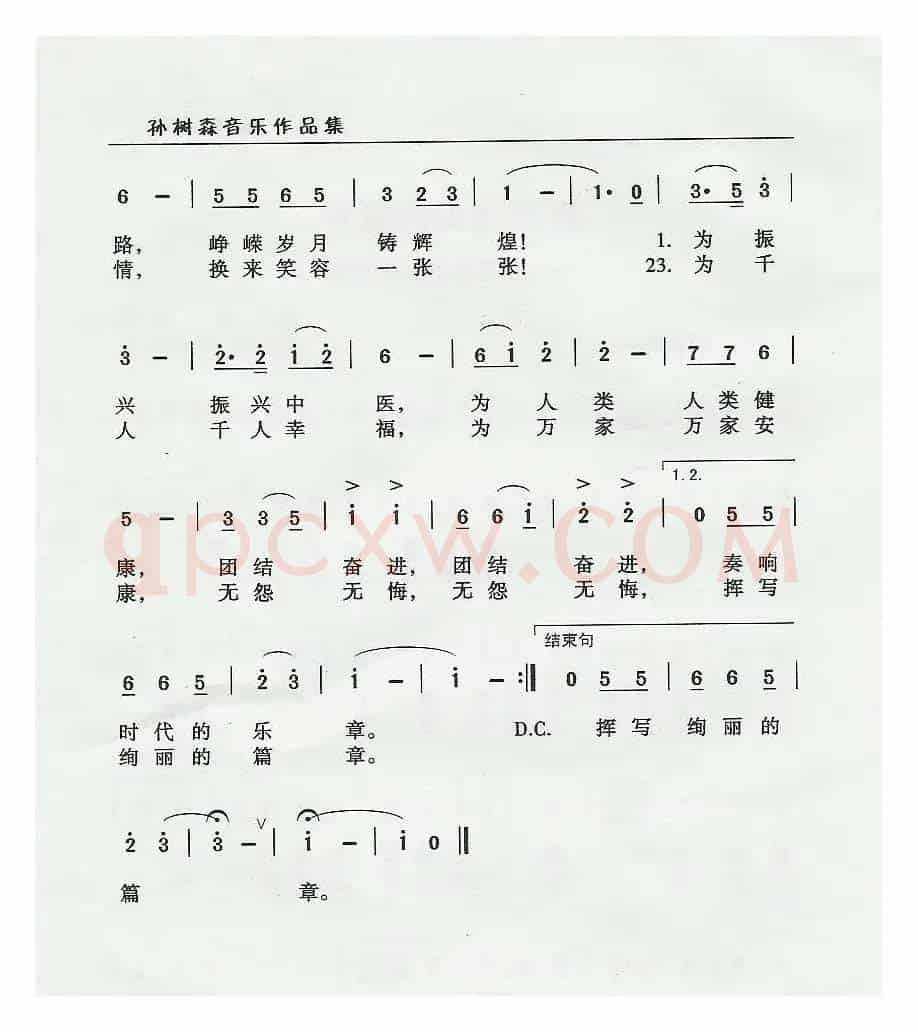 孙树森音乐作品集
6 – | 5 5 6 5 | 3 2 3 | 1 – | 1· 0 | 3· 5 3 |
路, 峥嵘岁月 铸辉 煌! 1. 为 振
情, 换来笑容 一张 张! 23. 为 千
3 – | 2· 2 1 2 | 6 – | 6 1 2 | 2 – | 7 7 6 |
兴 振兴中 医, 为 人 类 人类健
人 千人幸 福, 为 万 家 万家安
1.2.
5 – | 3 3 5 | 1 1 | 6 6 1 | 2 2 | 0 5 5 |
康, 团结 奋进, 团结 奋进, 奏响
康, 无怨 无悔, 无怨 无悔, 挥写
结束句
6 6 5 | 2 3 | 1 – | 1 – :‖ 0 5 5 | 6 6 5 |
时代的 乐 章。 D.C. 挥写 绚丽的
绚丽的 篇 章。
2 3 | 3 – ∨ | 1 – | 1 0 ‖
篇 章。
qpcxw.COM